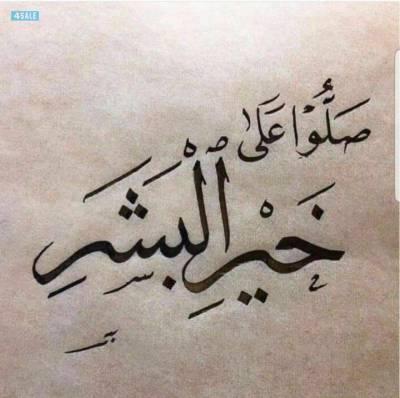 4SALE
صَلُّوْا عَلَىٰ
خَيْرِ الْبَشَرِ